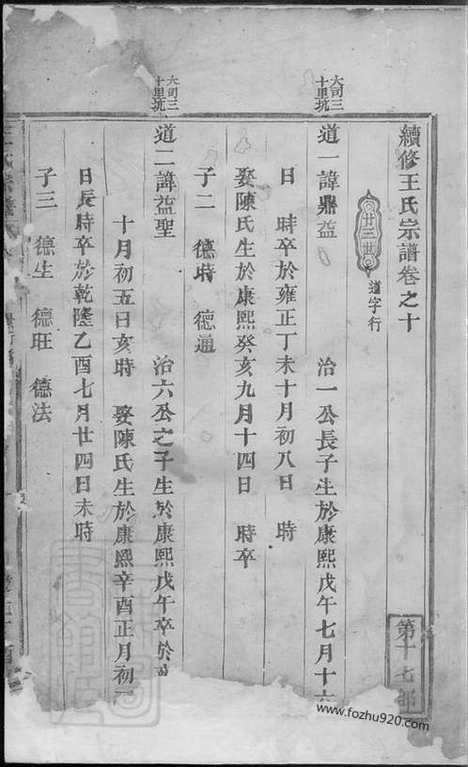 續修王氏宗譜卷之十
第十七部
廿三世
道字行
大司三十里坑
道一諱鼎益 治一公長子生於康熙戊午七月十六
日 時卒於雍正丁未十月初八日 時
娶陳氏生於康熙癸亥九月十四日 時卒
子二 德時 德通
大司三十里坑
道二諱益聖 治六公之子生於康熙戊午卒於
十月初五日亥時 娶陳氏生於康熙辛酉正月初
日長時卒於乾隆乙酉七月廿四日未時
子三 德生 德旺 德法
www.fozhu920.com